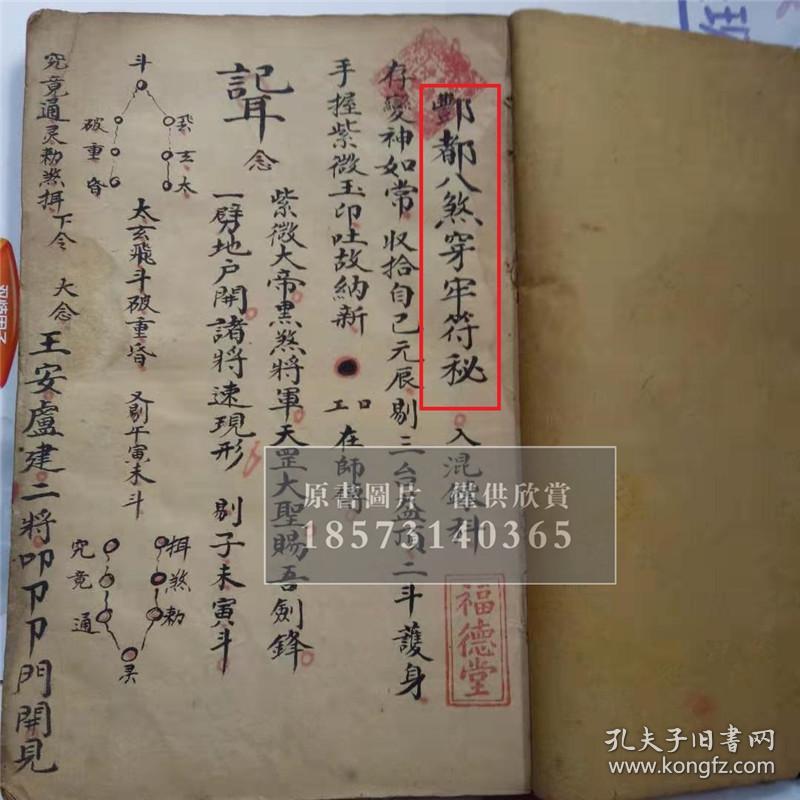 酆都八煞穿牢符秘 入混錬科
存變神如常 收拾自己元辰 剔三台蓋頂 二斗護身
手握紫微玉印 吐故納新 在師
念 紫微大帝 黑煞將軍 天罡大聖 賜吾劍鋒
一劈地戶開 諸將速現形 剔子未寅斗
斗
破重昏
玄太
太玄飛斗破重昏 又剔午寅未斗
究竟通灵勅煞揖 下令 大念
揖煞勅
究竟通
灵
王安盧建二將叩卩卩門開見
福德堂
原書圖片 僅供欣賞
18573140365
孔夫子旧书网
www.kongfz.com